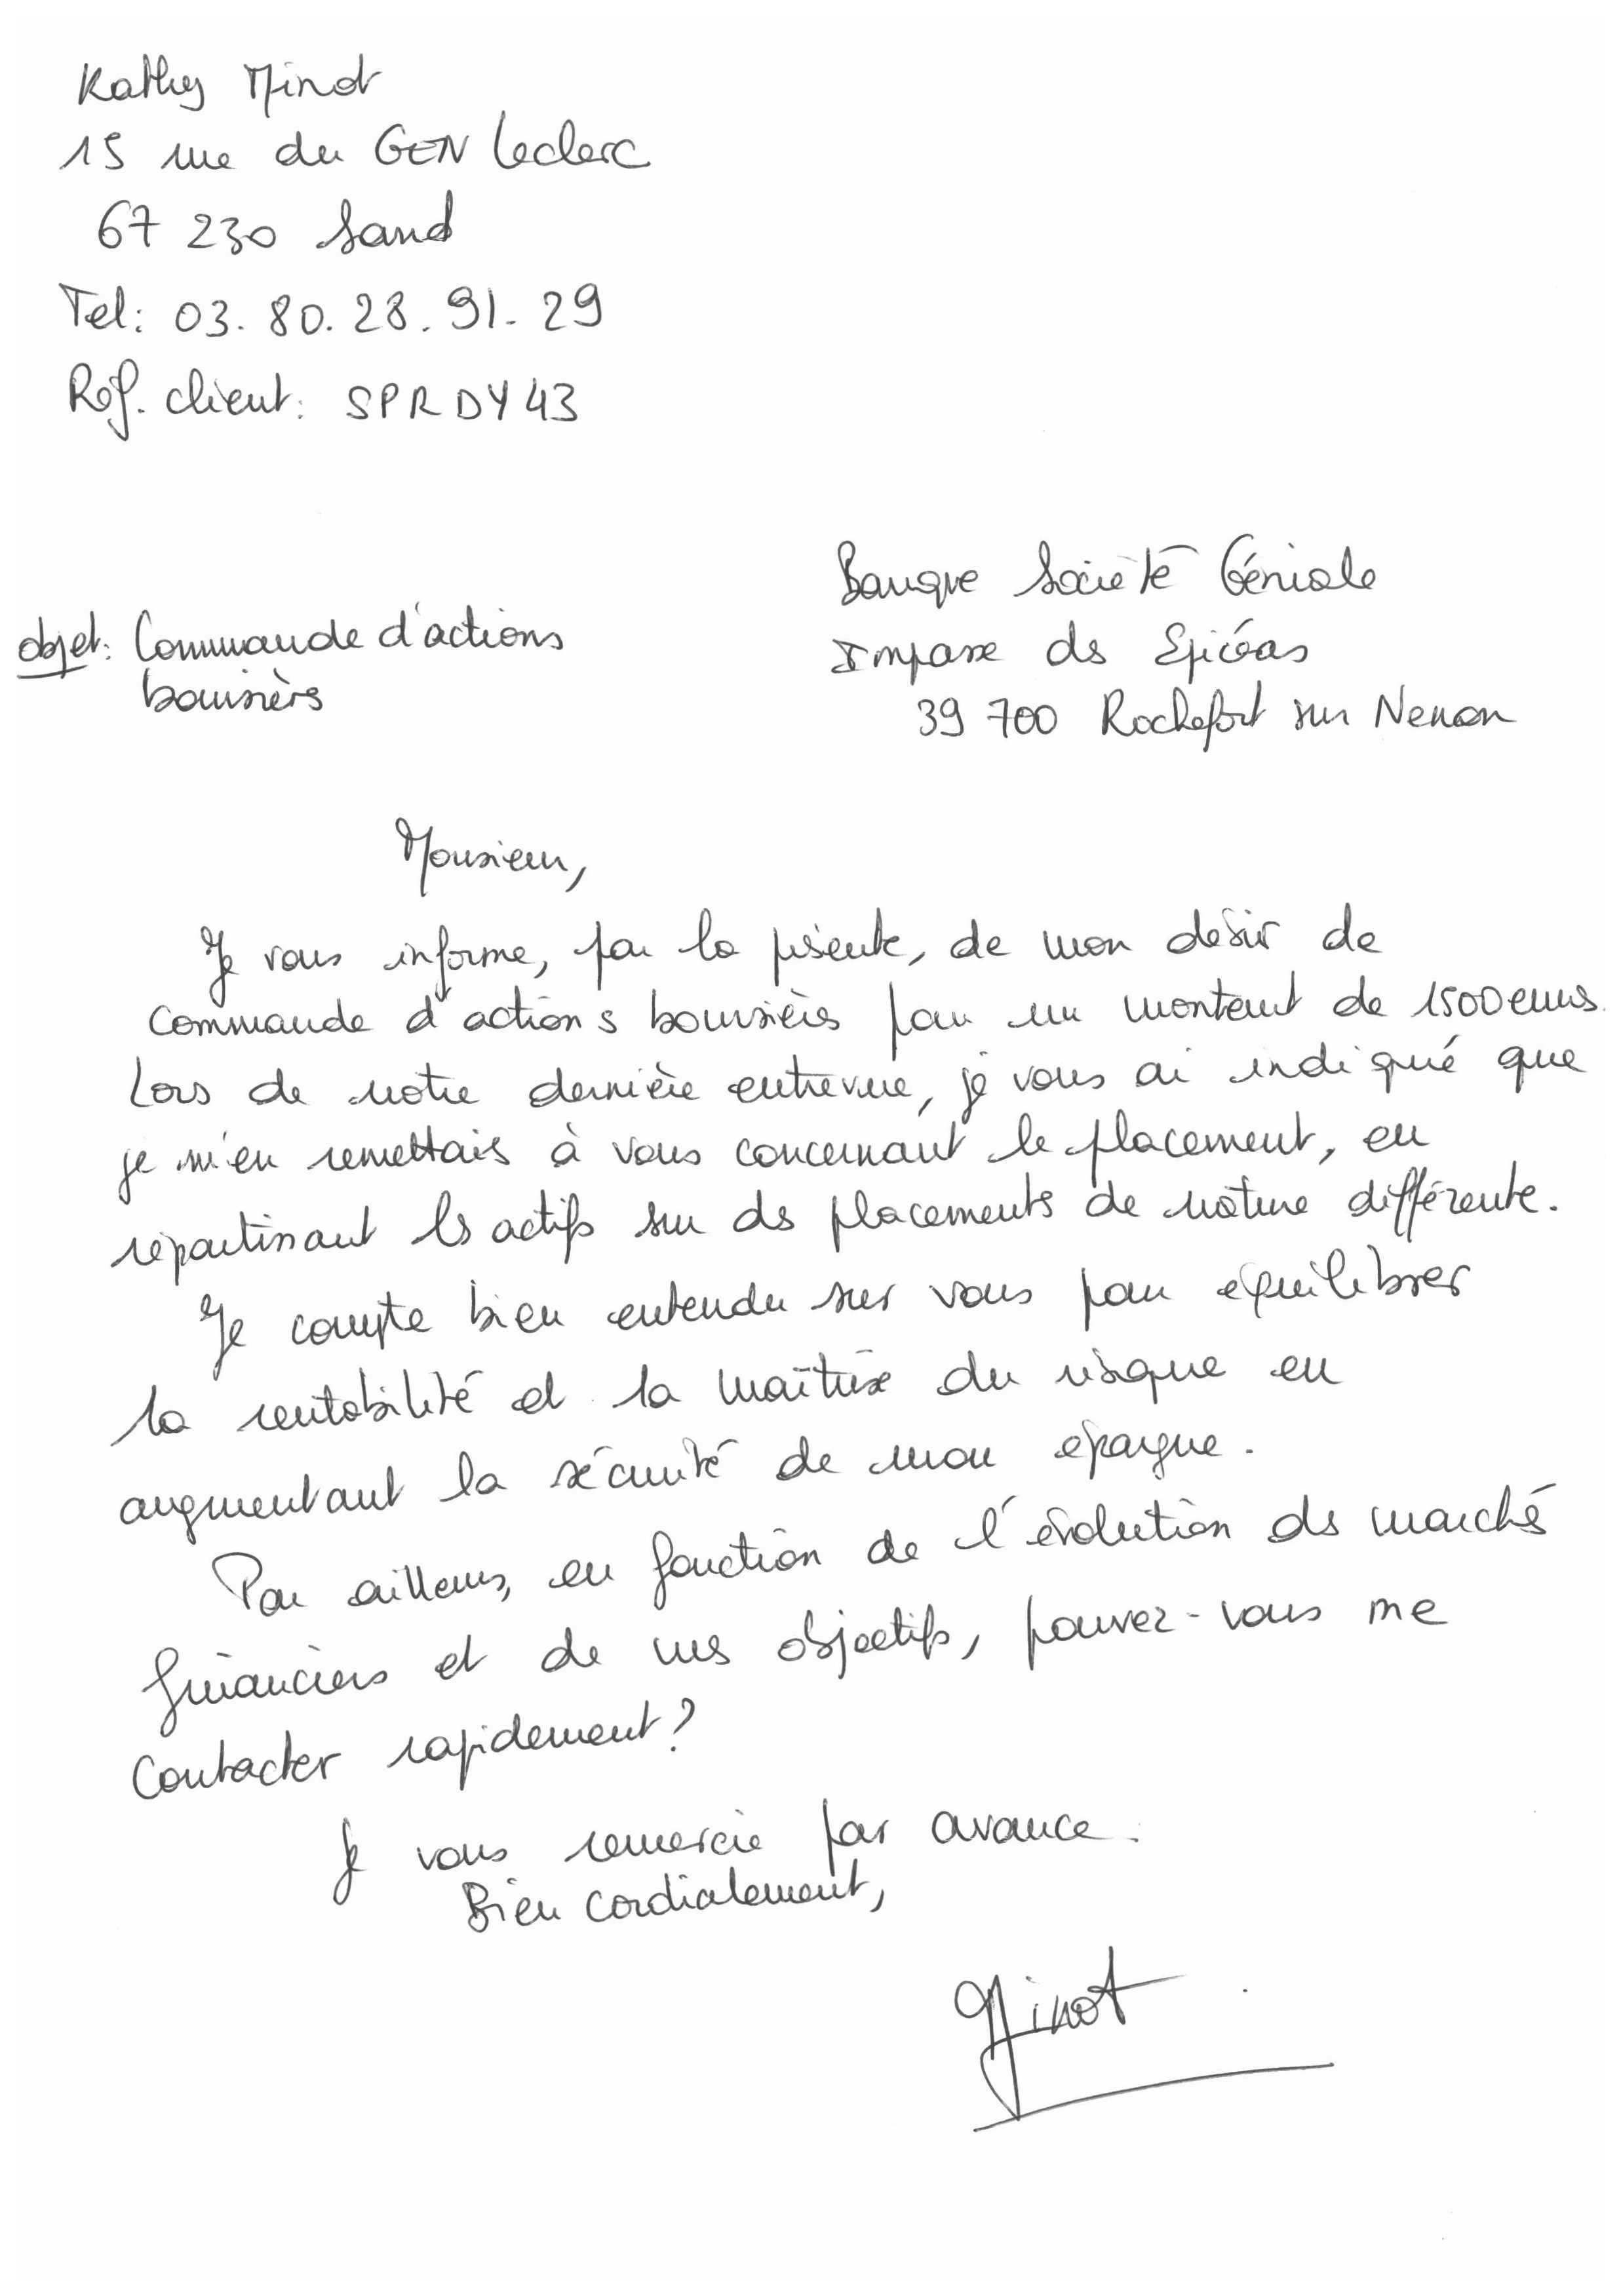 Kathy Minot
15 rue du GEN Leclerc
67 230 Sand
Tel: 03. 80. 28. 91. 29
Réf. client: SPRDY43
Banque Société Géniale
Impasse des Epicéas
39 700 Rochefort sur Nenon
objet: Commande d'actions
boursières
Monsieur,
Je vous informe, par la présente, de mon désir de
commande d'actions boursières pour un montant de 1500 euros.
Lors de notre dernière entrevue, je vous ai indiqué que
je m'en remettais à vous concernant le placement, en
répartissant les actifs sur des placements de nature différente.
Je compte bien entendu sur vous pour équilibrer
la rentabilité et la maîtrise du risque en
augmentant la sécurité de mon épargne.
Par ailleurs, en fonction de l'évolution des marchés
financiers et de mes objectifs, pouvez-vous me
contacter rapidement?
Je vous remercie par avance.
Bien cordialement,
Minot